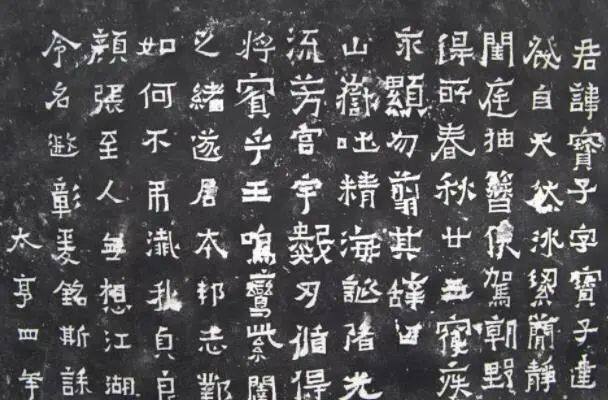 君諱寶子字寶子建
發自天然冰絜簡靜
閨庭抽簪俟駕朝野
得所春秋廿五寢疾
永顯勿翦其辭曰
山嶽吐精海誕陟光
流芳宮宇數刃循得
將賓乎王鳴鸞紫闥
之緒遂居本邦志鄴
如何不弔殲我貞良
顏張至人無想江湖
令名遐彰爰銘斯誄
太亨四年